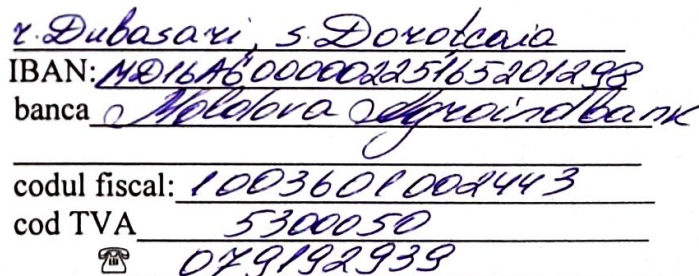 r. Dubasari, s. Dorotcaia
IBAN: MD16AG000000225165201298
banca Moldova Agroindbank
codul fiscal: 1003601002443
cod TVA 5300050
☎ 079192939